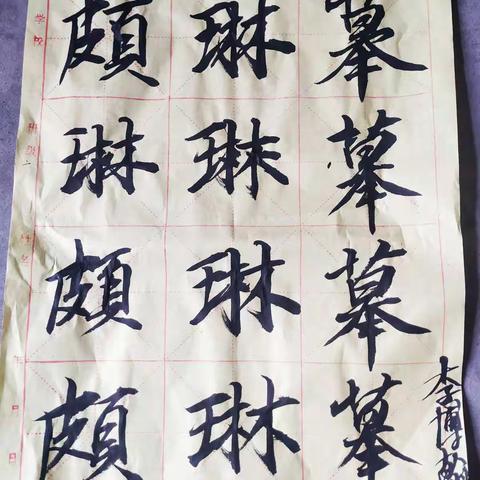 摹摹摹摹
琳琳琳琳
頗琳頗頗
李博
学校
班级
姓名
年月日